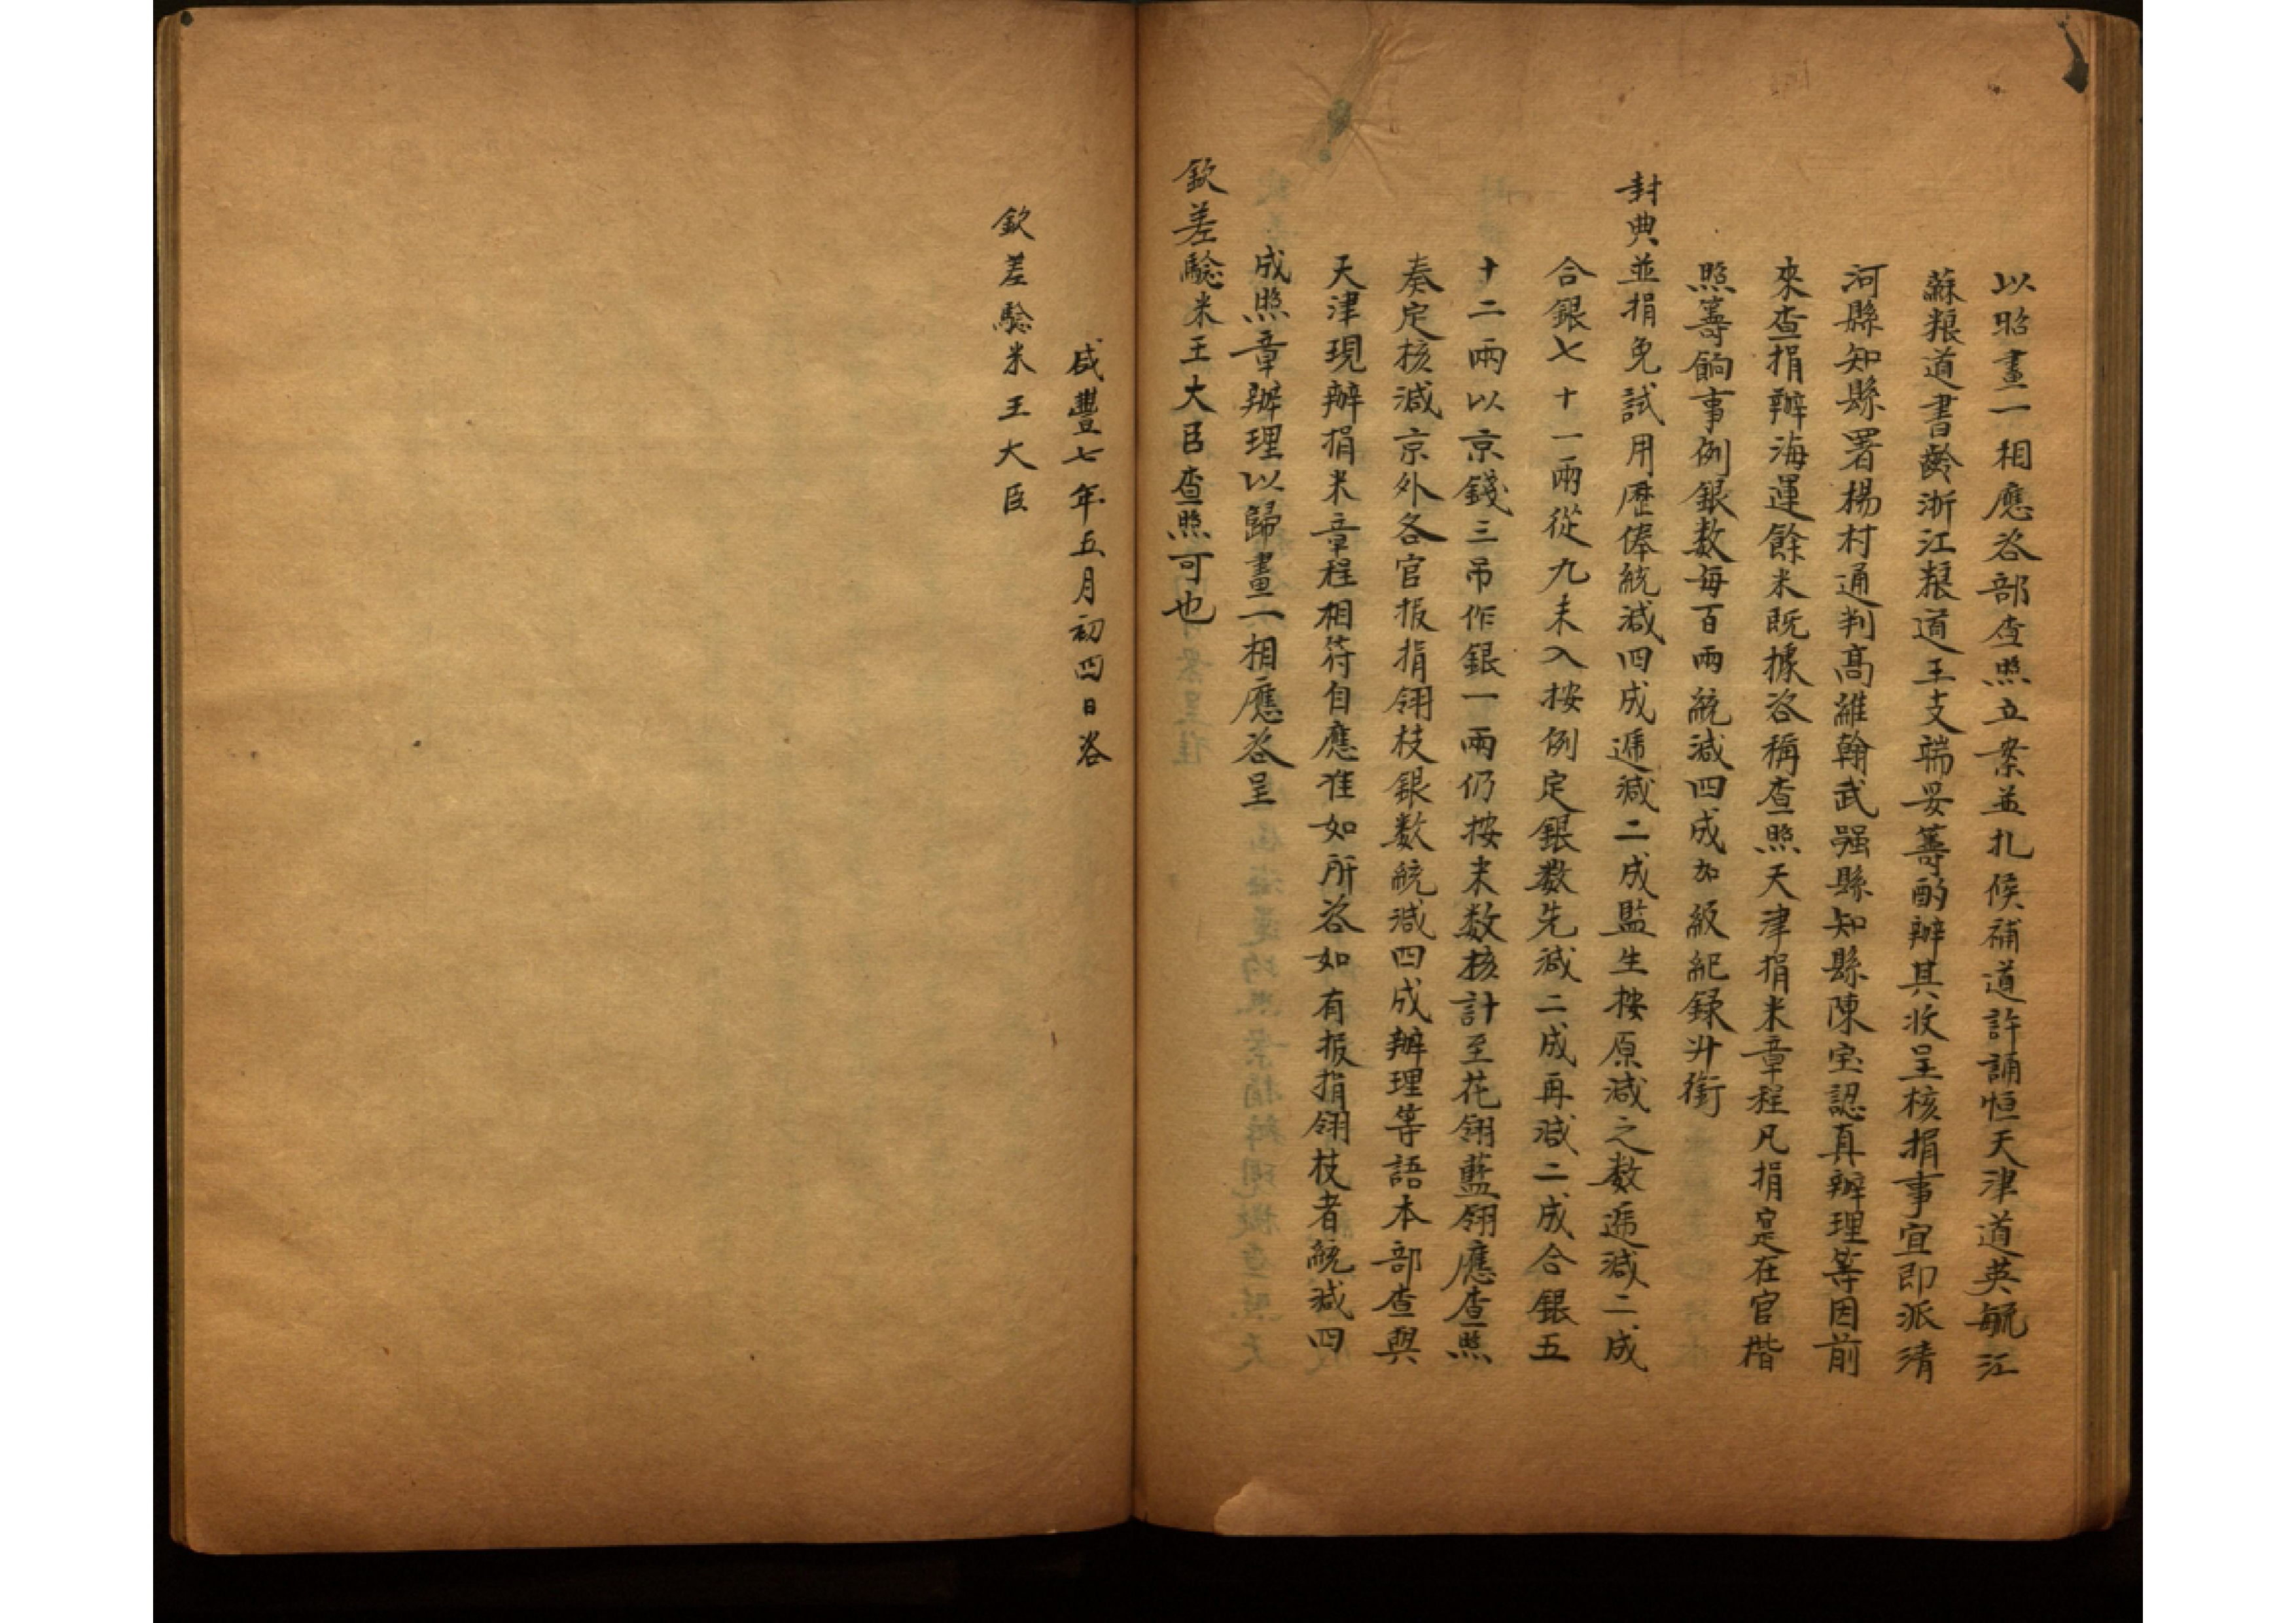 以昭畫一相應咨部查照立案並扎候補道許誦恒天津道英毓江
蘇粮道書齡浙江粮道王友端妥籌酌辦其收呈核捐事宜即派清
河縣知縣署楊村通判高維翰武强縣知縣陳宝認真辦理等因前
來查捐辦海運餘米既據咨稱查照天津捐米章程凡捐定在官楷
照籌餉事例銀数每百兩統減四成加級紀録升銜
封典並捐免試用歷俸統減四成遞減二成監生按原減之数遞減二成
合銀七十一兩從九未入按例定銀数先減二成再減二成合銀五
十二兩以京錢三吊作銀一兩仍按米数核計至花翎藍翎應查照
奏定核減京外各官报捐翎枝銀数統減四成辦理等語本部查與
天津現辦捐米章程相符自應准如所咨如有报捐翎枝者統減四
成照章辦理以歸畫一相應咨呈
欽差驗米王大臣查照可也
咸豐七年五月初四日咨
欽差驗米王大臣